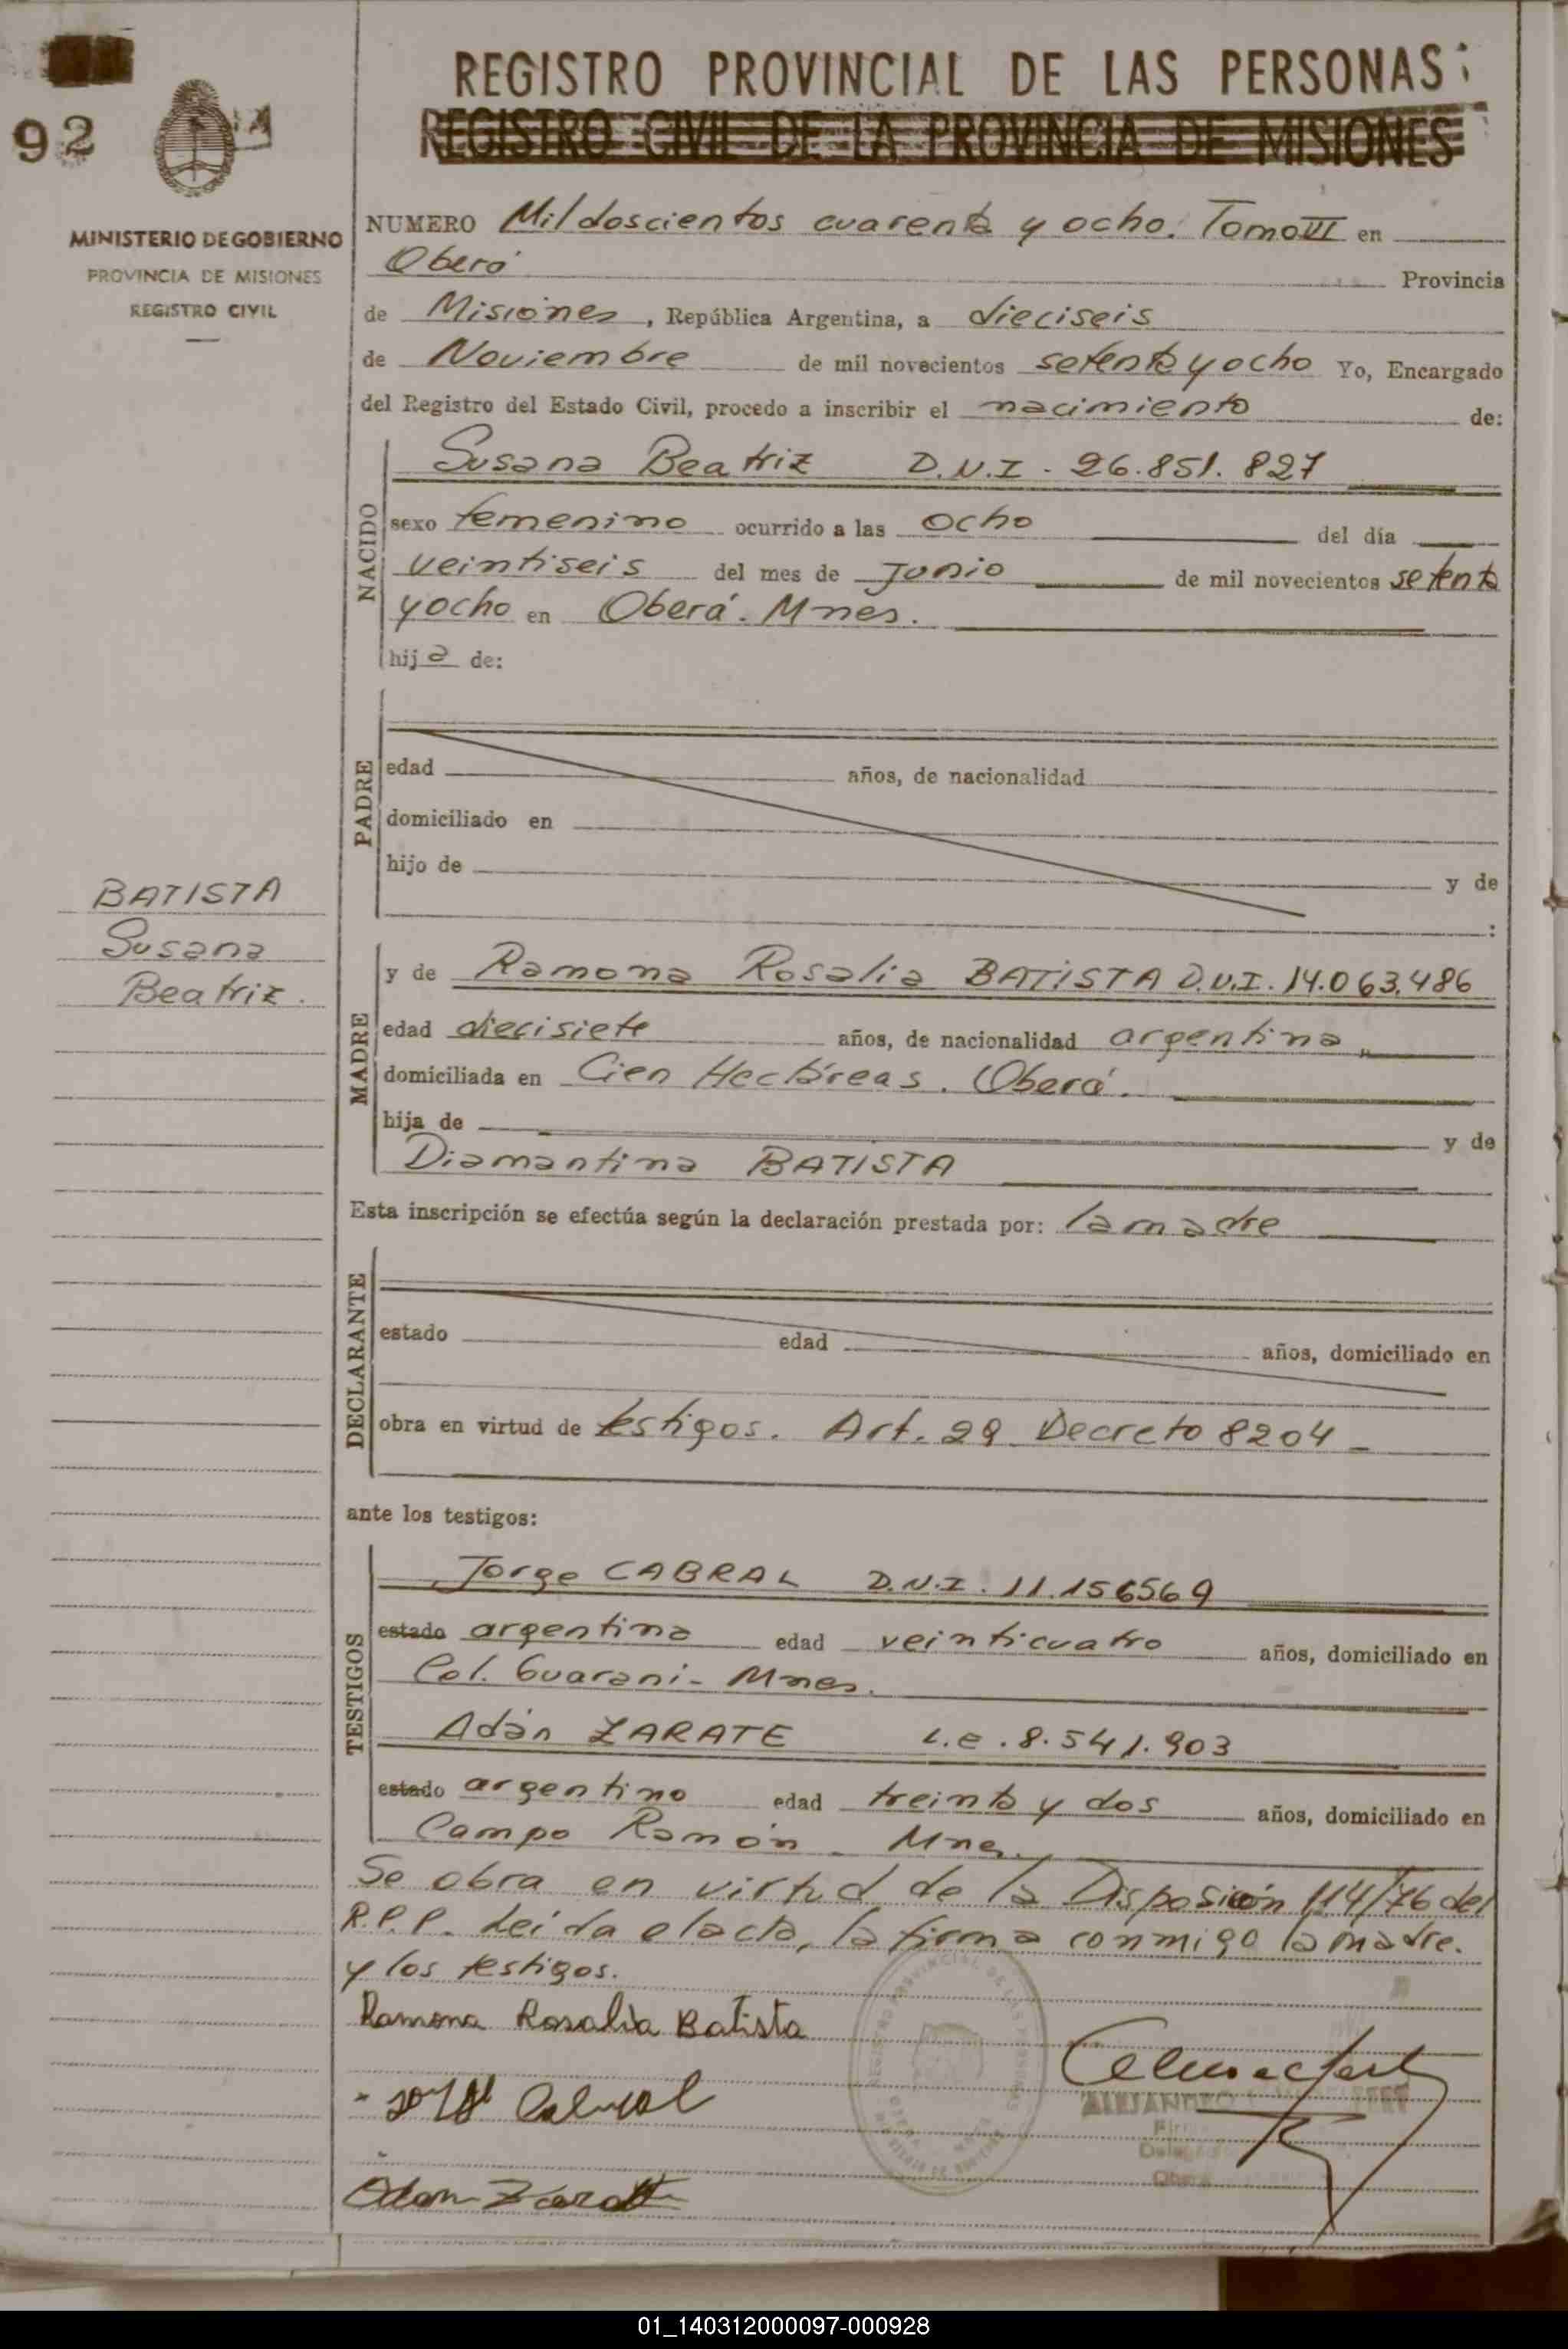 REGISTRO PROVINCIAL DE LAS PERSONAS
REGISTRO CIVIL DE LA PROVINCIA DE MISIONES
92
MINISTERIO DE GOBIERNO
PROVINCIA DE MISIONES
REGISTRO CIVIL
NUMERO Mil doscientos cuarenta y ocho. Tomo VI en
Oberá Provincia
de Misiones, República Argentina, a dieciseis
de Noviembre de mil novecientos setenta y ocho Yo, Encargado
del Registro del Estado Civil, procedo a inscribir el nacimiento de:
NACIDO
Susana Beatriz D.N.I. 26.851.827
sexo femenino ocurrido a las ocho del día
veintiseis del mes de Junio de mil novecientos setenta
y ocho en Oberá. Mnes.
hija de:
PADRE
edad años, de nacionalidad
domiciliado en
hijo de y de
:
BATISTA
Susana
Beatriz.
MADRE
y de Ramona Rosalia BATISTA D.N.I. 14.063.486
edad diecisiete años, de nacionalidad argentina
domiciliada en Cien Hectáreas. Oberá.
hija de y de
Diamantina BATISTA
Esta inscripción se efectúa según la declaración prestada por: la madre
DECLARANTE
estado edad años, domiciliado en
obra en virtud de testigos. Art. 29 Decreto 8204
ante los testigos:
TESTIGOS
Jorge CABRAL D.N.I. 11.156569
estado argentino edad veinticuatro años, domiciliado en
Col. Guarani - Mnes.
Adán ZARATE L.e. 8.541.903
estado argentino edad treinta y dos años, domiciliado en
Campo Ramón - Mnes.
Se obra en virtud de la Disposición 114/76 del
R.P.P. Leída el acta, la firma conmigo la madre.
y los testigos.
Ramona Rosalia Batista
Cabral
ALEJANDRO
Adan Zarate
01_140312000097-000928